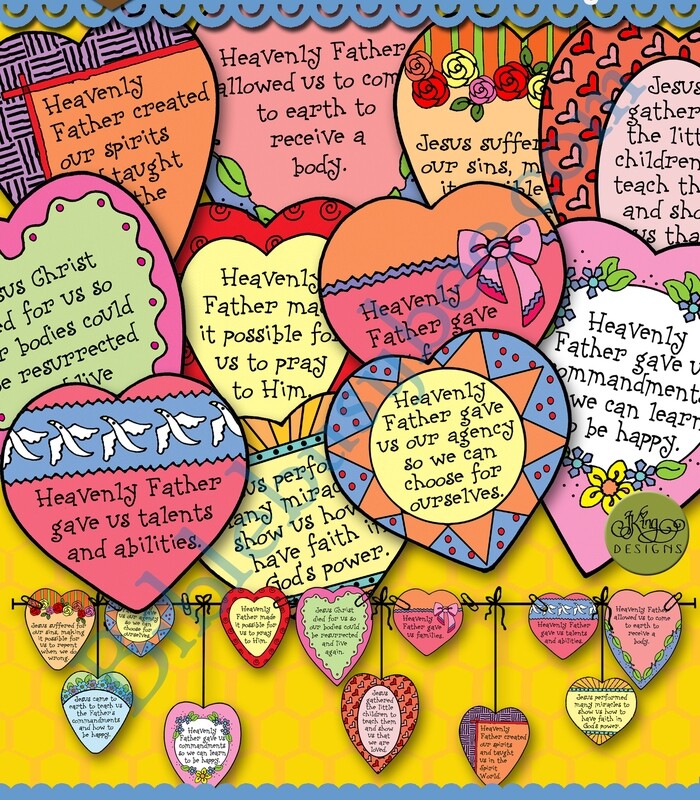 Heavenly
Father created
our spirits
taught
the
Heavenly Father
allowed us to com
to earth to
receive a
body.
Jesus suffer
our sins, m
it
Jesus
gather
the litt
children
teach th
and sho
us tha
sus Christ
ed for us so
r bodies could
e resurrected
live
Heavenly
Father mad
it possible for
us to pray
to Him.
Heavenly
Father gave
Heavenly
Father gave u
ommandments
we can learn
be happy.
Heavenly Father
gave us talents
and abilities.
sus perfo
any mirac
show us how
have faith in
God's power.
Heavenly
Father gave
us our agency
so we can
choose for
ourselves.
JKing
DESIGNS
Jesus suffered for
our sins, making
it possible for
us to repent
when we do
wrong.
Heavenly
Father gave
us our agency
so we can
choose for
ourselves.
Heavenly
Father made
it possible for
us to pray
to Him.
Jesus Christ
died for us so
our bodies could
be resurrected
and live
again.
Heavenly
Father gave
us families.
Heavenly Father
gave us talents
and abilities.
Heavenly Father
allowed us to come
to earth to
receive a
body.
Jesus came to
earth to teach us
the Father's
commandments
and how to
be happy.
Heavenly
Father gave us
commandments
so we can learn
to be happy.
Jesus
gathered
the little
children to
teach them
and show
us that
we are
loved.
Heavenly
Father created
our spirits
and taught
us in the
Spirit
World.
Jesus performed
many miracles to
show us how to
have faith in
God's power.